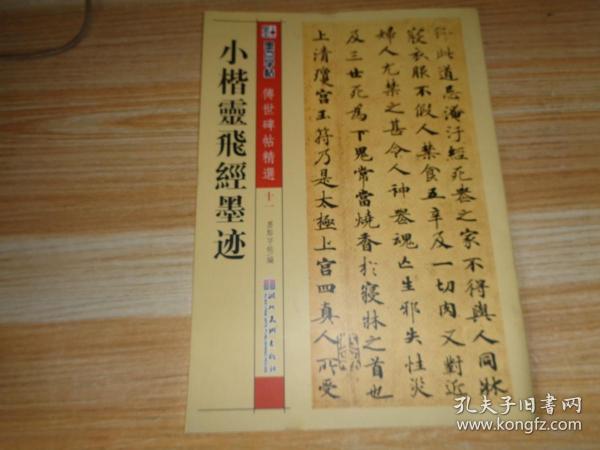 小楷靈飛經墨迹
墨点字帖
傳世碑帖精選
十一
墨點字帖編
湖北美術出版社
行此道忌淹汙經死喪之家不得與人同牀
寢衣服不假人禁食五辛及一切肉又對近
婦人尤禁之甚令人神喪魂亡生邪失性災
及三世死爲下鬼常當燒香於寢牀之首也
上清瓊宮玉符乃是太極上宮四真人所受
孔夫子旧书网
www.kongfz.com